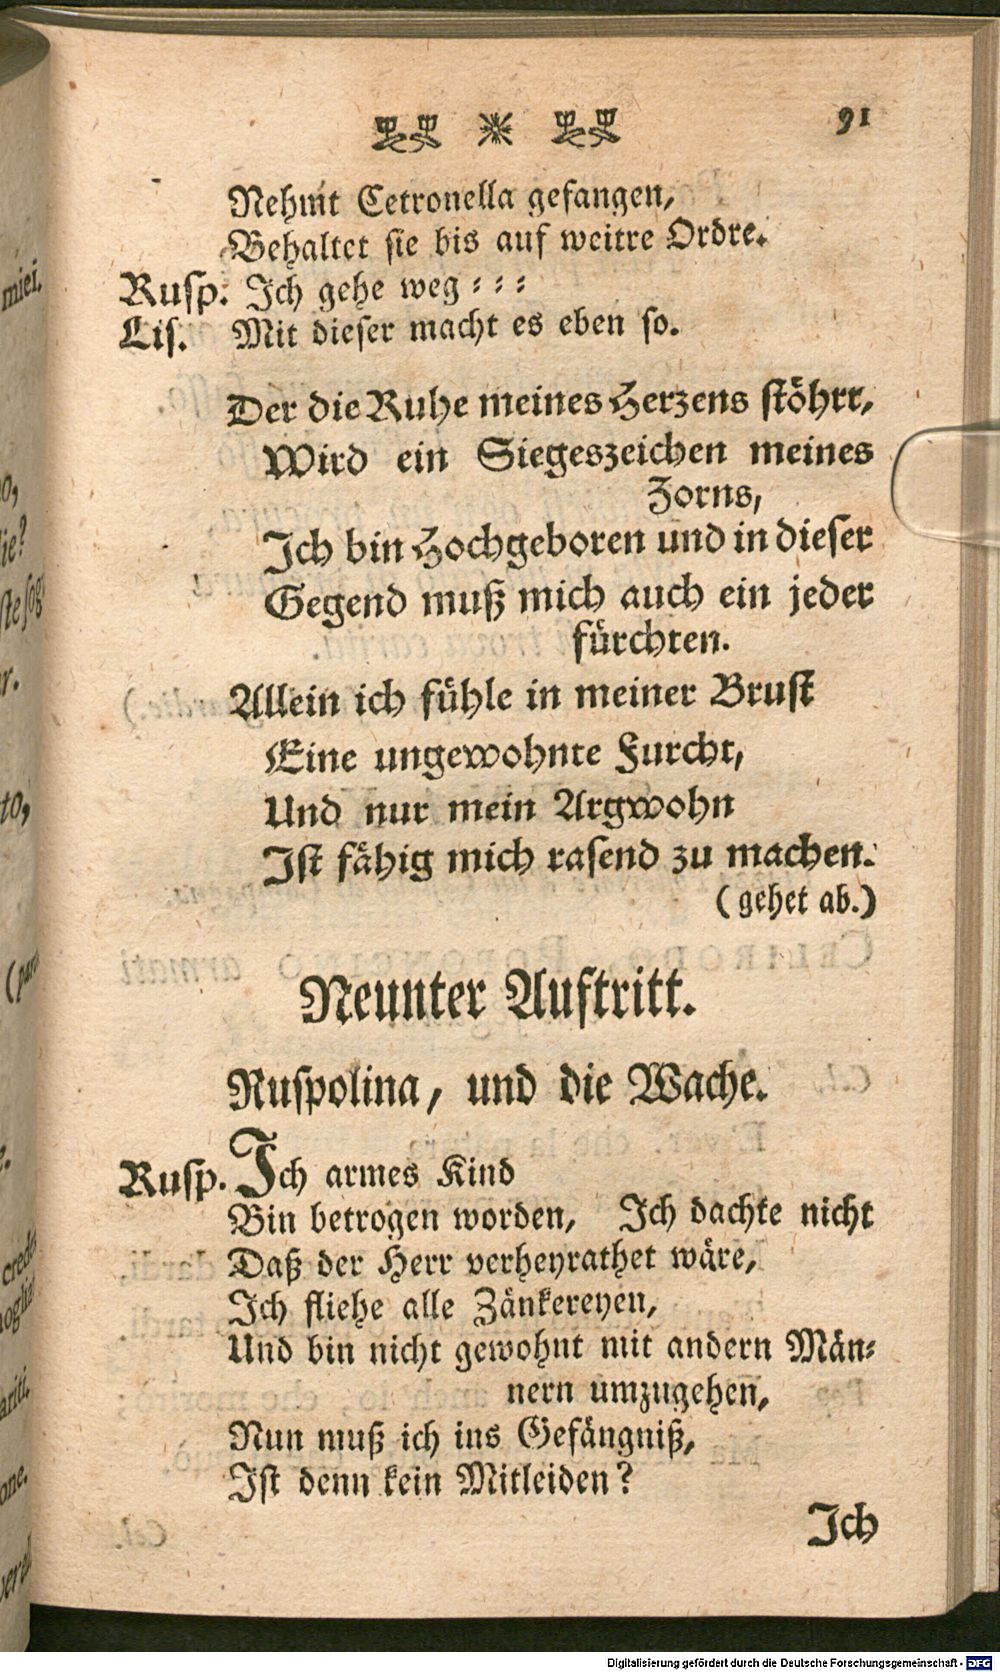 91
Nehmt Cetronella gefangen,
Behaltet sie bis auf weitre Ordre.
Rusp. Ich gehe weg : : :
Lis. Mit dieser macht es eben so.
Der die Ruhe meines Herzens stöhrt,
Wird ein Siegeszeichen meines
Zorns,
Ich bin Hochgeboren und in dieser
Gegend muß mich auch ein jeder
fürchten.
Allein ich fühle in meiner Brust
Eine ungewohnte Furcht,
Und nur mein Argwohn
Ist fähig mich rasend zu machen.
(gehet ab.)
Neunter Auftritt.
Ruspolina, und die Wache.
Rusp. Ich armes Kind
Bin betrogen worden, Ich dachte nicht
Daß der Herr verheyrathet wäre,
Ich fliehe alle Zänkereyen,
Und bin nicht gewohnt mit andern Män-
nern umzugehen,
Nun muß ich ins Gefängniß,
Ist denn kein Mitleiden?
Ich
Digitalisierung gefördert durch die Deutsche Forschungsgemeinschaft - DFG